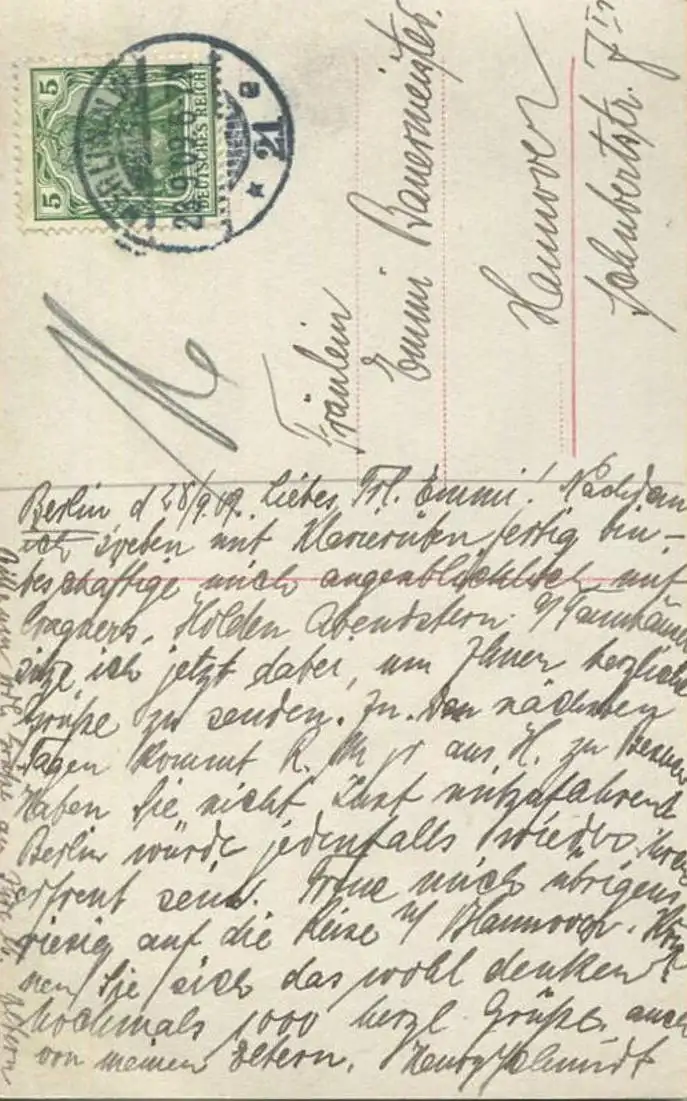 5 5
DEUTSCHES REICH
BERLIN
21
Fräulein
Emmi Bauermeister.
Hannover
Schubertstr.
Berlin d 28/9.09. Liebes Frl. Emmi! Nachdem
ich soeben mit Klavierüben fertig bin –
beschäftige mich augenblicklich mit
Wagners, Holden Abendstern. a/Tannhäuser
sitze ich jetzt dabei, um Ihnen herzliche
Grüße zu senden. In den nächsten
Tagen kommt R. aus H. zu
Haben Sie nicht Lust mitzufahren?
Berlin würde jedenfalls wieder
erfreut sein. Freue mich übrigens
riesig auf die Reise n/ Hannover. Kön
nen Sie sich das wohl denken?
Nochmals 1000 herzl Grüße. auch
von meinen Eltern. Henry Schmidt
Grüße an Ihre Eltern